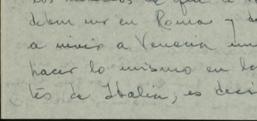 que a
deben ver en Roma y de
a vivir a Venecia un
hacer lo mismo en lo
tés de Italia, es deci